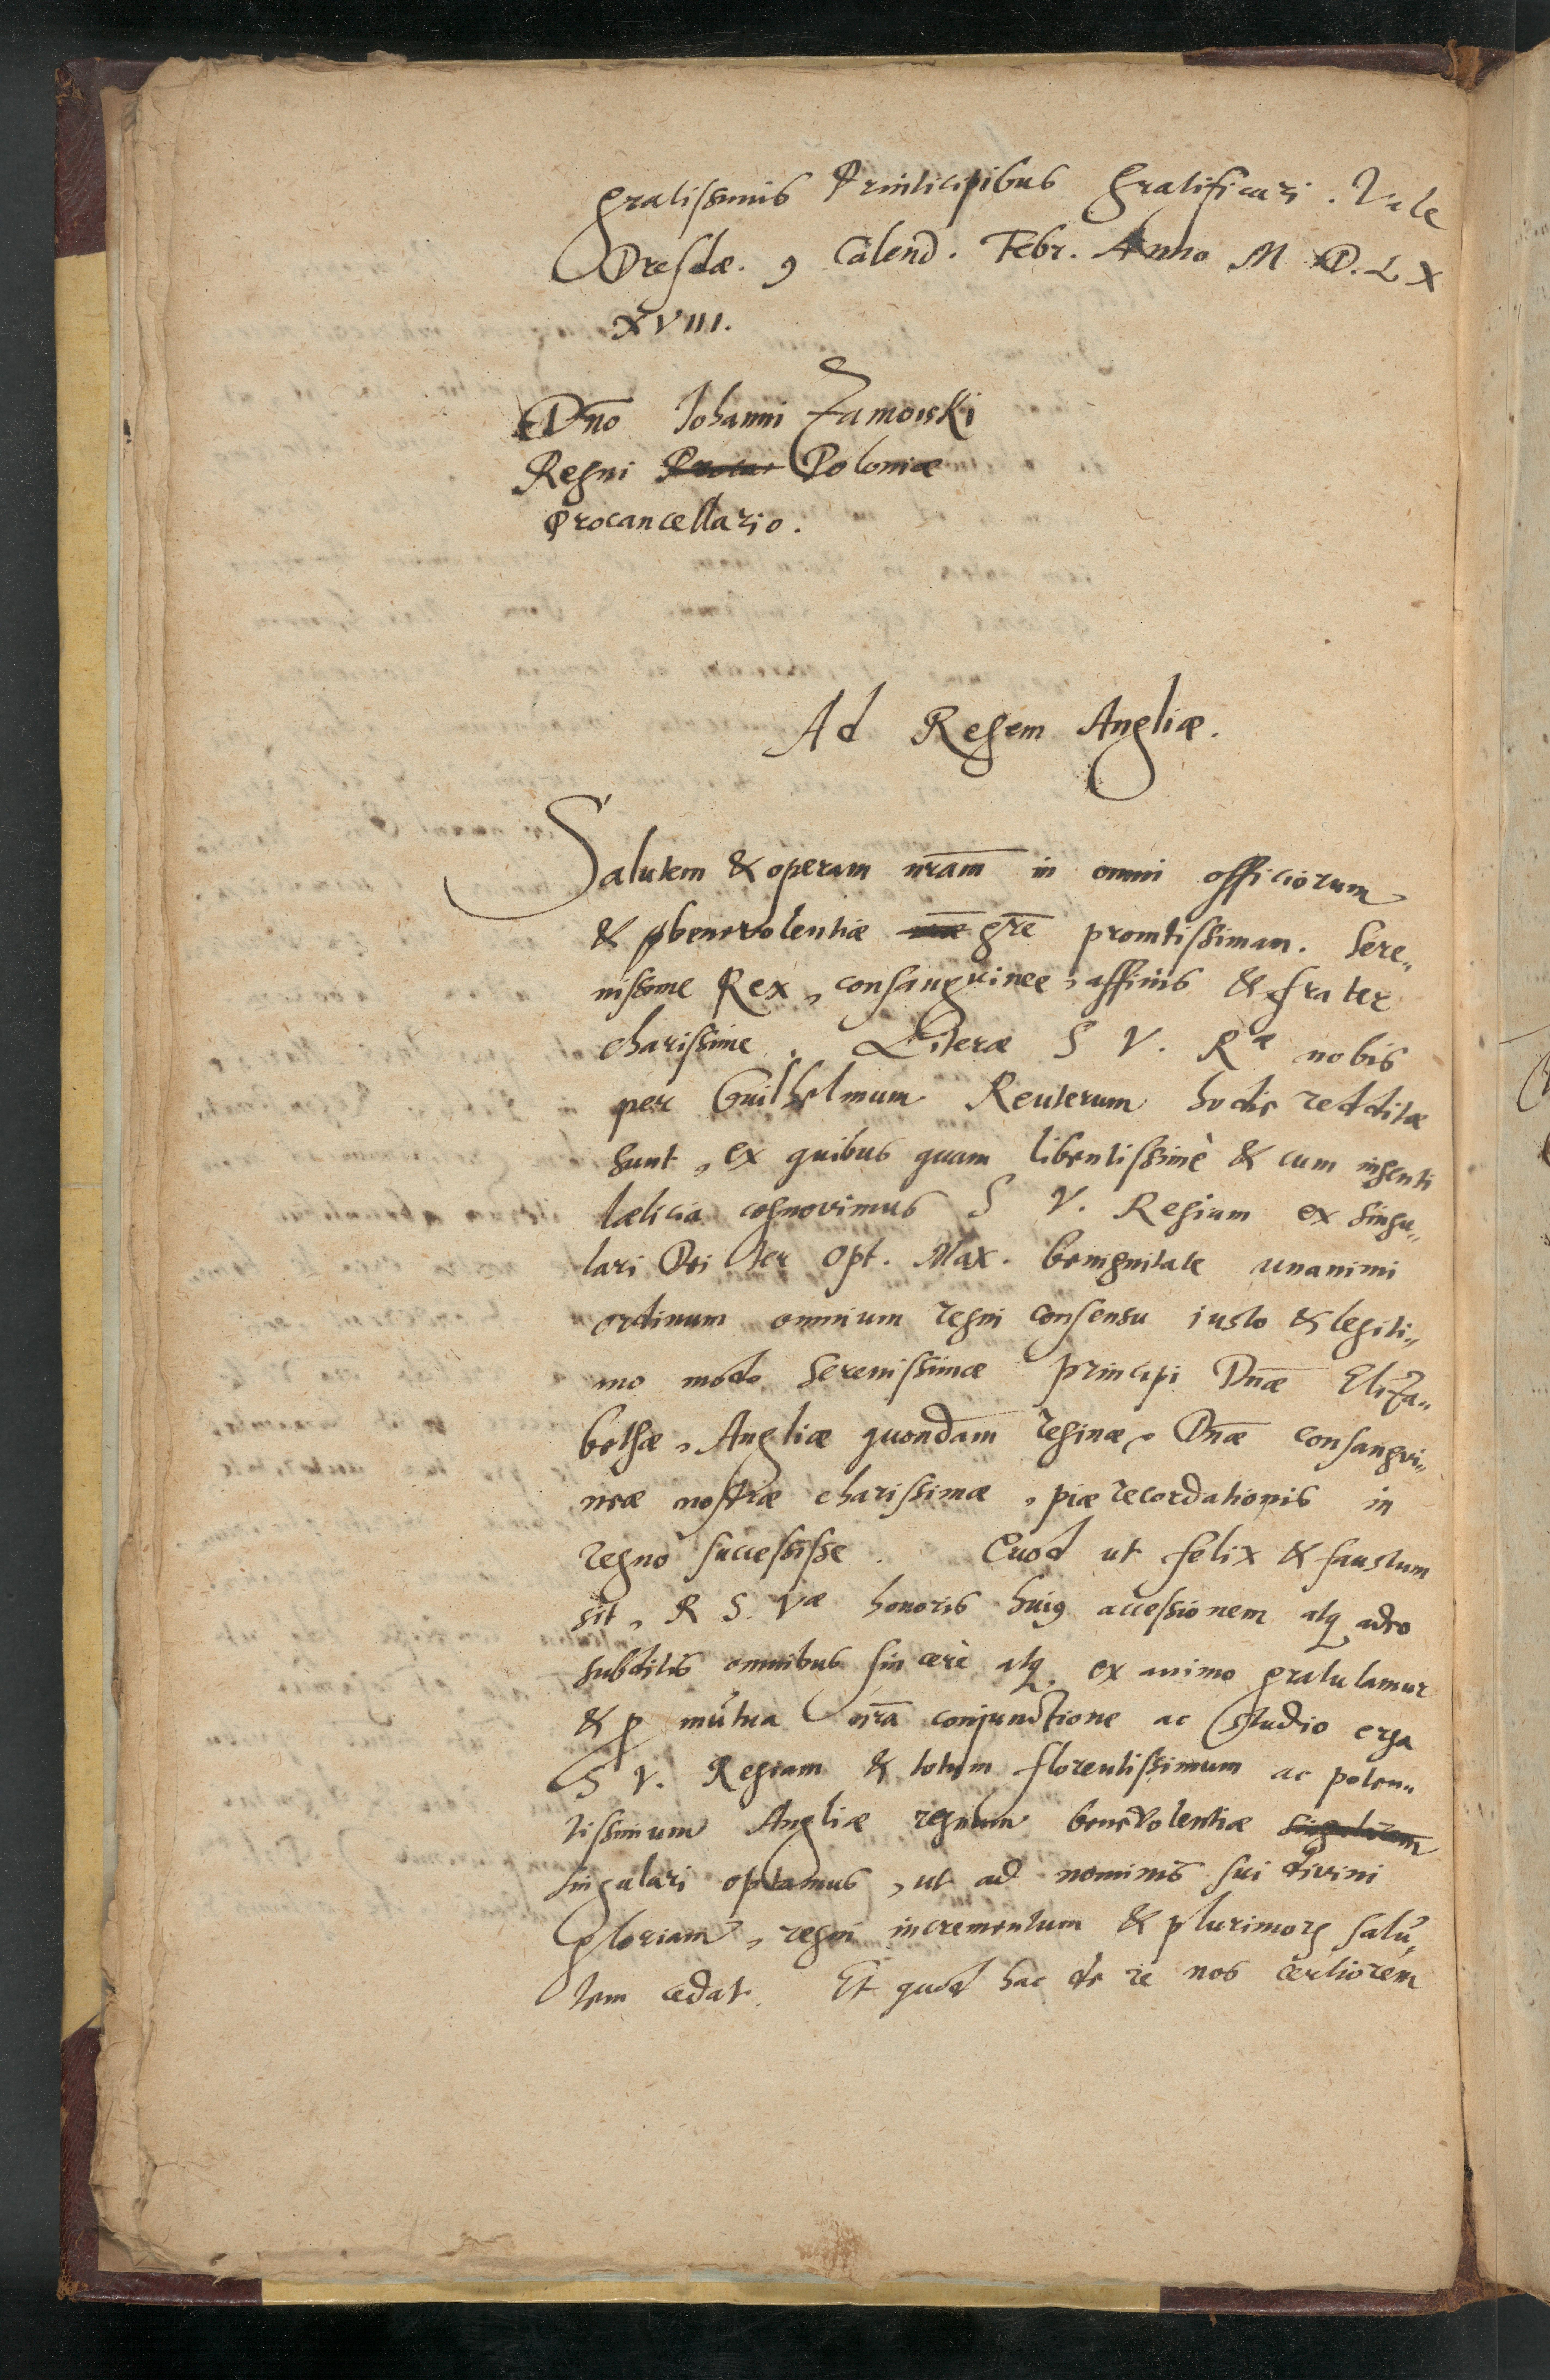 gratissimis Principibus gratificari. Vale
Dresdæ. 9 Calend. Febr. Anno M D. L X
XVIII.
Dn̄o Johanni Zamoiski
Regni Poloniæ
Procancellario.
Ad Regem Angliæ.
Salutem & operam nr̄am in omni officiorum
& benevolentiæ gr̄e promtissimam. Sere„
nissime Rex, consanguinee, affinis & frater
charissime. Literæ S V. Ræ nobis
per Guilhelmum Reuterum hodie redditæ
sunt, ex quibus quam libentissimè & cum ingenti
lætícia cognovimus S V. Regiam ex singu„
lari Dei ter Opt. Max. benignitate unanimi
ordinum omnium regni consensu iusto & legiti„
mo modo Serenissimæ Principi Dn̄æ Eliza„
bethæ, Angliæ quondam reginæ, Dn̄æ consangvi„
neæ nostræ charissimæ, piæ recordationis in
regno successisse. Quod ut felix & faustum
sit, R S. Væ honoris huiꝰ accessionem atqꝫ adeo
subditis omnibus sincerè atqꝫ ex animo gratulamur
& p mutua nr̄a conjunctione ac studio erga
S V. Regiam & totum florentissimum ac poten„
tissimum Angliæ regnum benevolentiæ
singulari optamus, ut ad nominis sui divini
gloriam, regni incrementum & plurimoꝝ salu„
tem cedat. Et quod hac de re nos certiorem